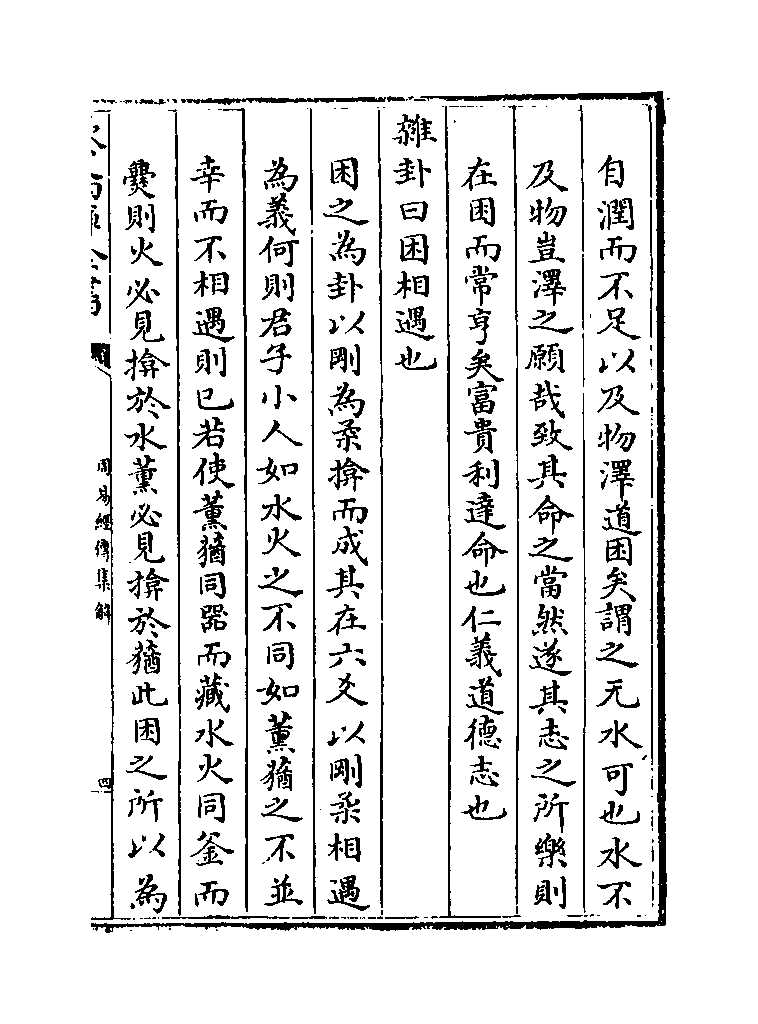 自潤而不足以及物澤道困矣謂之无水可也水不
及物豈澤之願哉致其命之當然遂其志之所樂則
在困而常亨矣富貴利達命也仁義道德志也
雜卦曰困相遇也
困之為卦以剛為柔揜而成其在六爻以剛柔相遇
為義何則君子小人如水火之不同如薰蕕之不並
幸而不相遇則已若使薰蕕同器而藏水火同釜而
爨則火必見揜於水薰必見揜於蕕此困之所以為
周易經傳集解
四